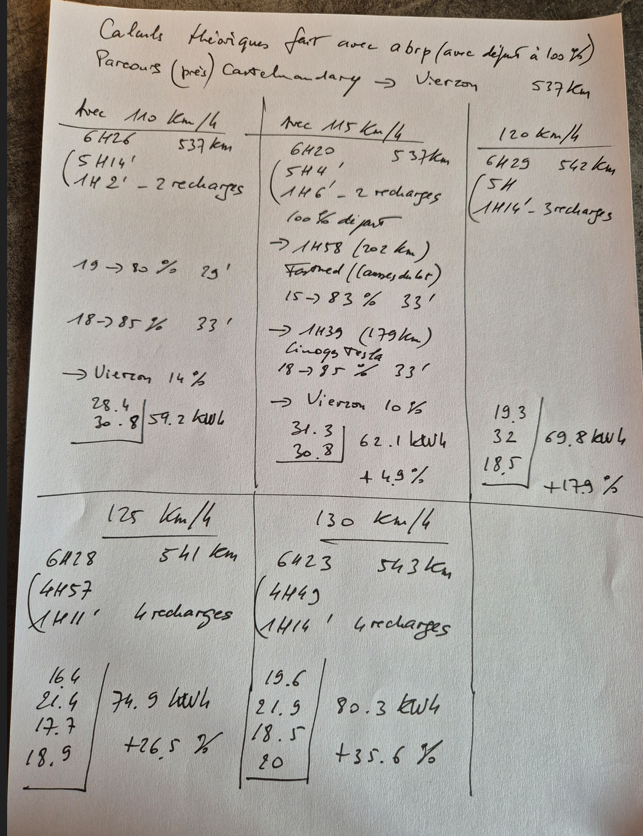 Calculs théoriques fait avec abrp (avec départ à 100 %)
Parcours (près) Castelnaudary → Vierzon 537 Km
Avec 110 Km/h
6H26 537 km
5H14'
1H2' - 2 recharges
19 → 80 % 29'
18 → 85 % 33'
→ Vierzon 14 %
28.4
30.8 59.2 kWh
Avec 115 Km/h
6H20 537 km
5H4'
1H6' - 2 recharges
100 % départ
→ 1H58 (202 km)
Fastned (Causses du Lot
15 → 83 % 33'
→ 1H39 (179 km)
Limoges Tesla
18 → 85 % 33'
→ Vierzon 10 %
31.3
30.8 62.1 kWh
+ 4.9 %
120 km/h
6H29 542 km
5H
1H14' - 3 recharges
19.3
32 69.8 kWh
18.5
+17.9 %
125 Km/h
6H28 541 km
4H57
1H11' 4 recharges
16.4
21.4 74.9 kWh
17.7
18.9 +26.5 %
130 Km/h
6H23 543 Km
4H49
1H14' 4 recharges
19.6
21.9 80.3 kWh
18.5
20 +35.6 %